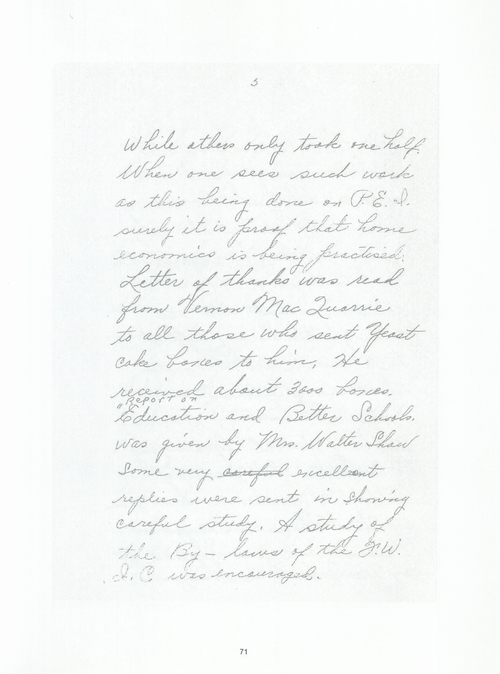 3
While others only took one half.
When one sees such work
as this being done on P.E.I.
surely it is proof that home
economics is being practised.
Letter of thanks was read
from Vernon Mac Quarrie
to all those who sent Yeast
cake boxes to him. He
received about 3000 boxes.
"Report on"
Education and Better Schools.
was given by Mrs. Walter Shaw
Some very careful excellent
replies were sent in showing
careful study. A study of
the By-laws of the F.W.
I.C was encouraged.
71